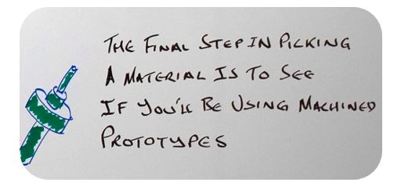 THE FINAL STEP IN PICKING
A MATERIAL IS TO SEE
IF YOU'LL BE USING MACHINED
PROTOTYPES